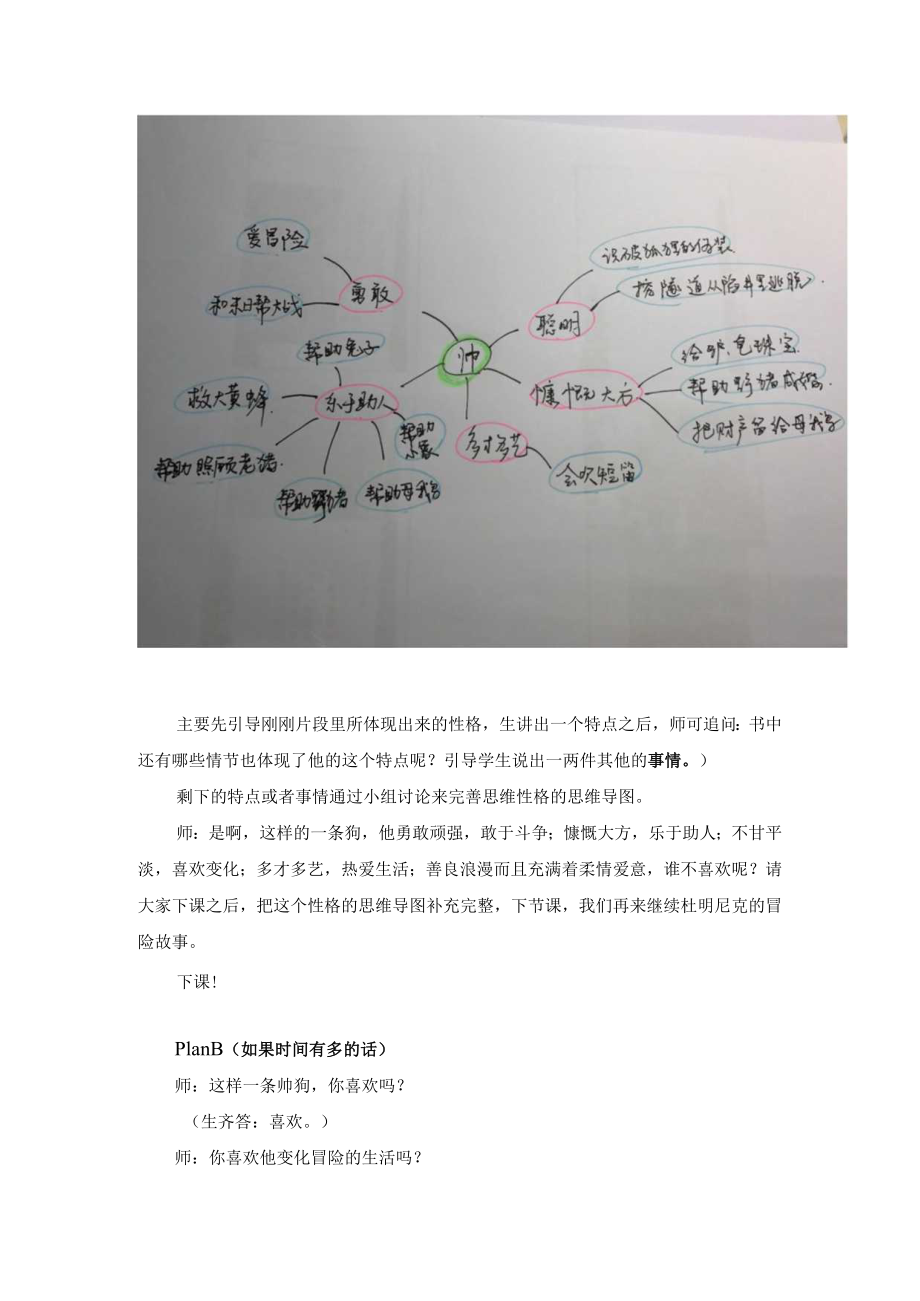 爱冒险
勇敢
和末日帮大战
帮助兔子
救大黄蜂
乐于助人
帮助
小象
帮助照顾老猪.
帮助野猪
帮助母我鸟
帅
聪明
识破狐狸的伪装
挖隧道从陷井里逃脱.
慷慨大方
给驴、龟珠宝
帮助野猪成婚.
把财产留给母我鸟
多才多艺
会吹短笛
主要先引导刚刚片段里所体现出来的性格，生讲出一个特点之后，师可追问：书中
还有哪些情节也体现了他的这个特点呢？引导学生说出一两件其他的事情。）
剩下的特点或者事情通过小组讨论来完善思维性格的思维导图。
师：是啊，这样的一条狗，他勇敢顽强，敢于斗争；慷慨大方，乐于助人；不甘平
淡，喜欢变化；多才多艺，热爱生活；善良浪漫而且充满着柔情爱意，谁不喜欢呢？请
大家下课之后，把这个性格的思维导图补充完整，下节课，我们再来继续杜明尼克的冒
险故事。
下课！
PlanB（如果时间有多的话）
师：这样一条帅狗，你喜欢吗？
（生齐答：喜欢。）
师：你喜欢他变化冒险的生活吗？